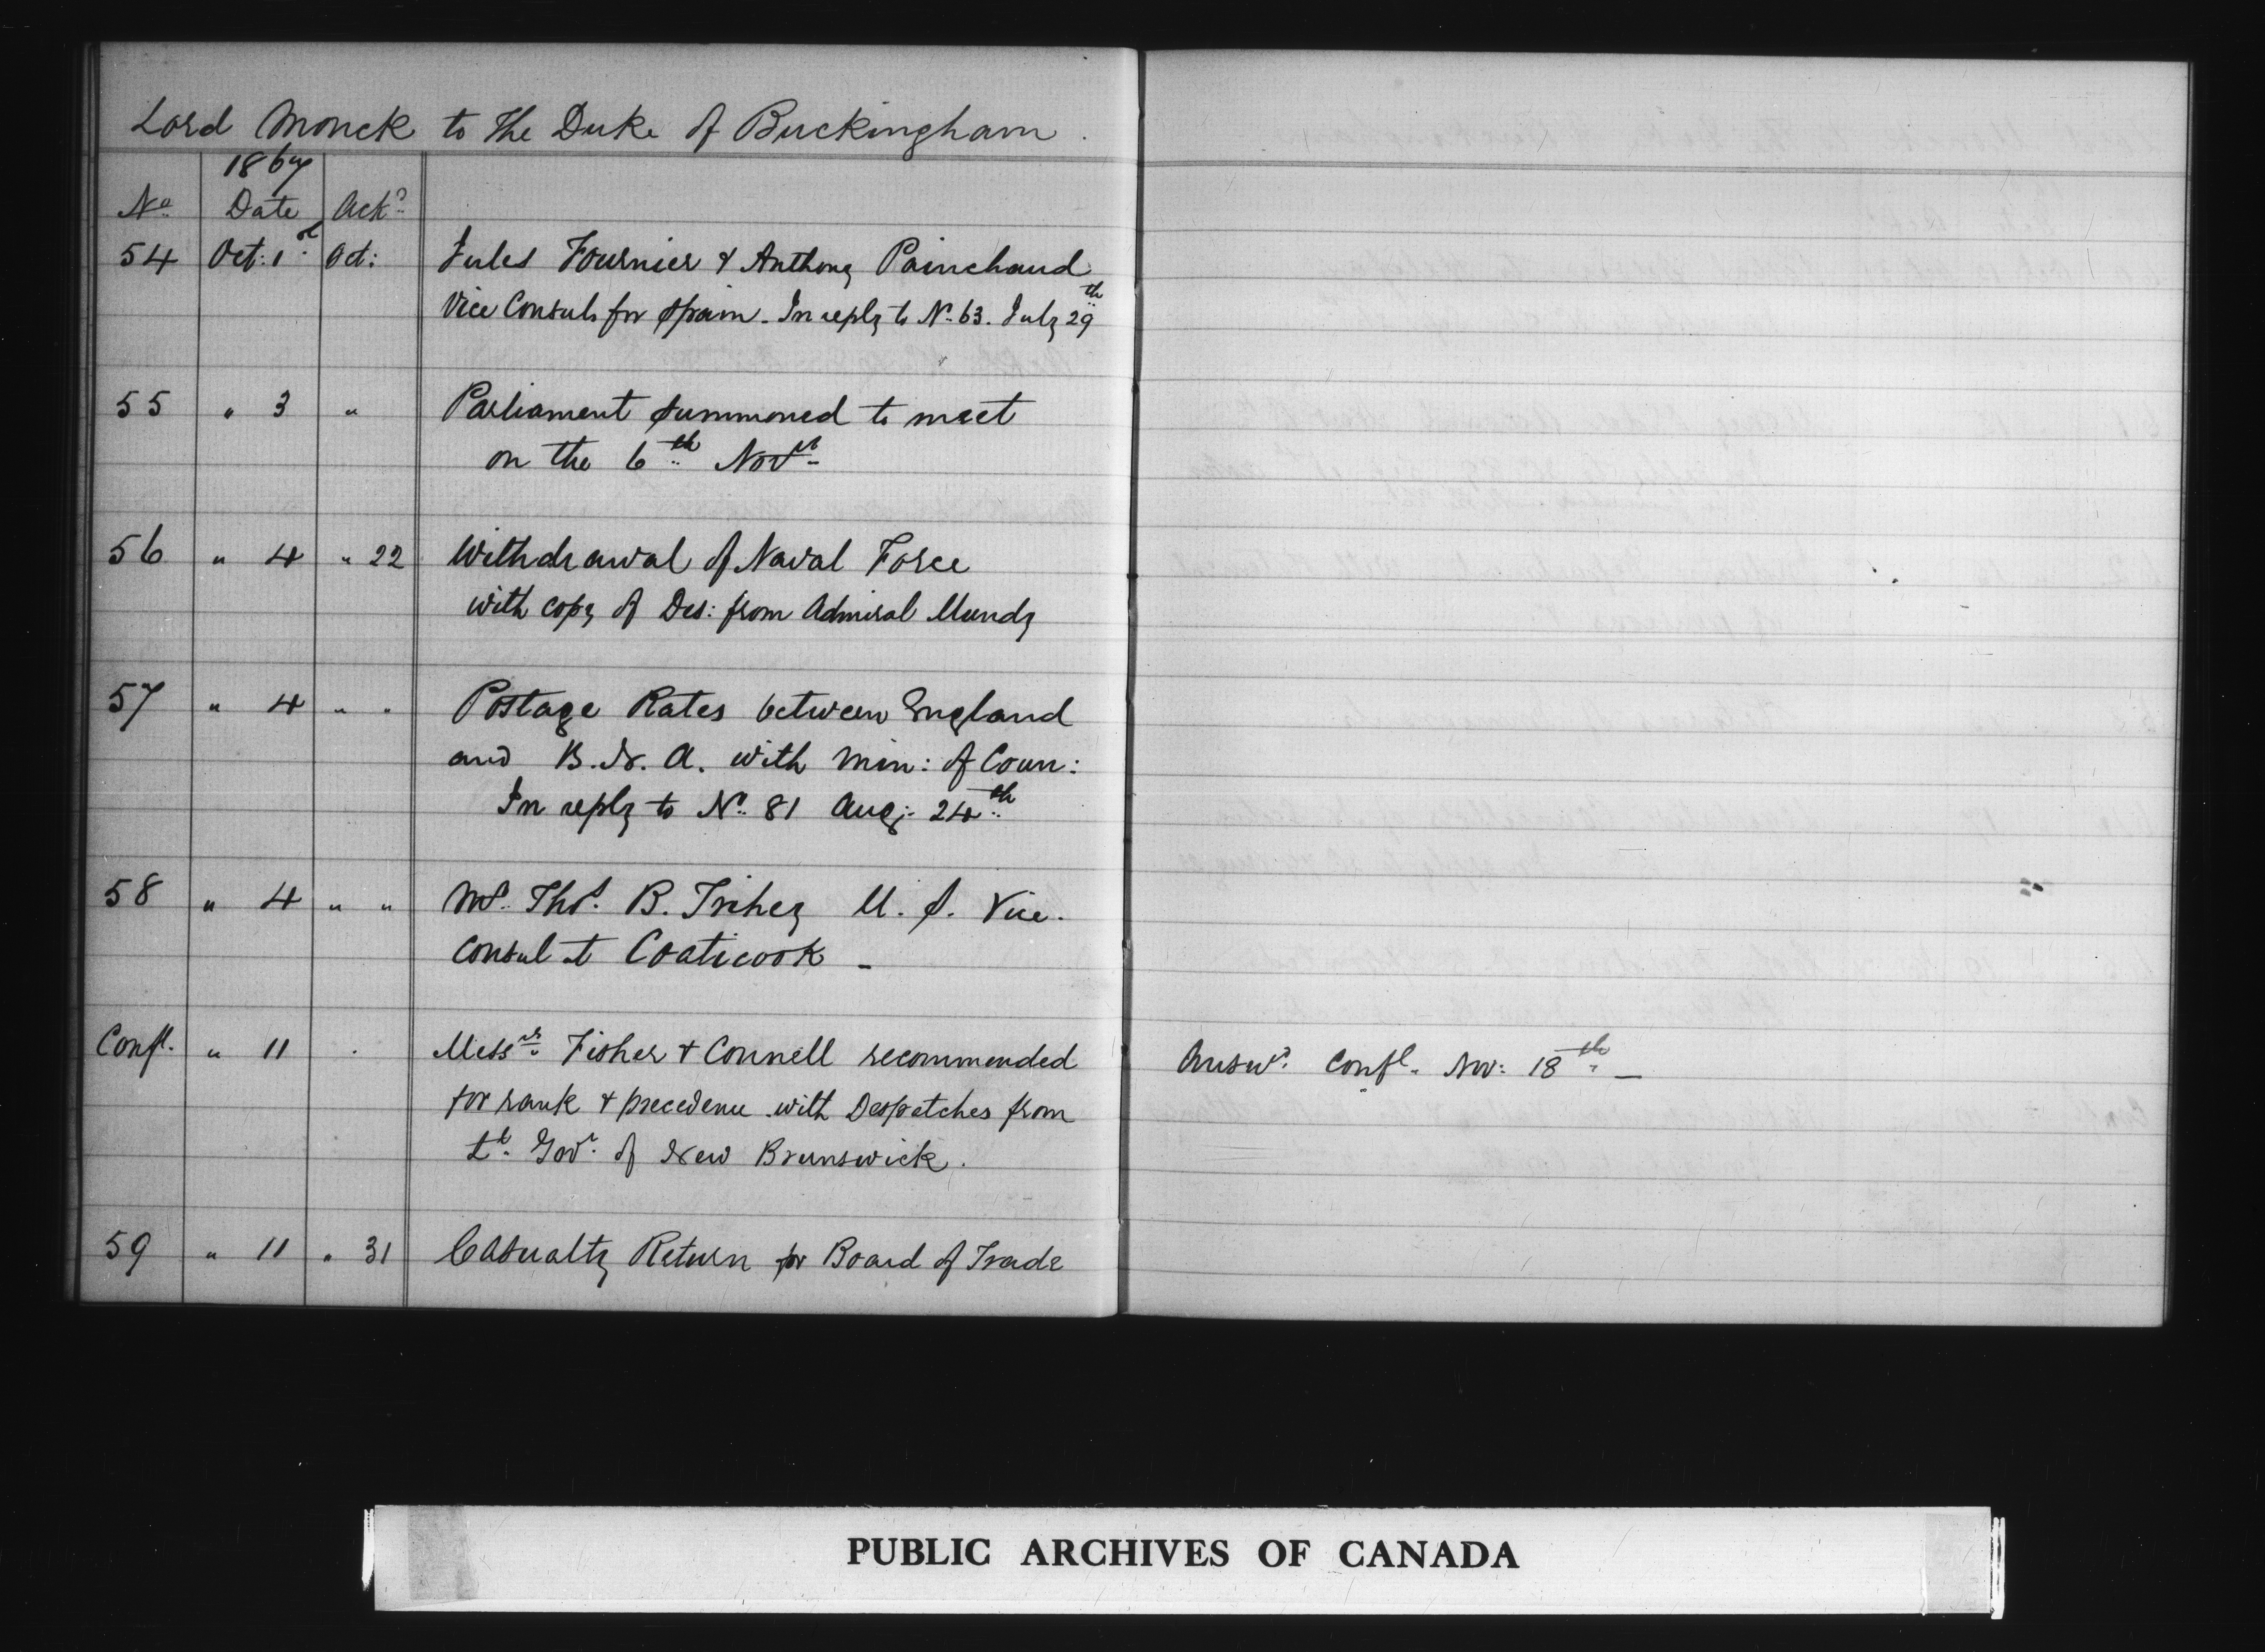 Lord Monck to The Duke of Buckingham.
1867
No. Date Ackd.
54 Oct: 1st Oct: Jules Fournier & Anthony Painchaud
Vice Consuls for Spain - In reply to No. 63. July 29th
55 " 3 " Parliament summoned to meet
on the 6th Novr.
56 " 4 " 22 Withdrawal of Naval Force
with copy of Des: from Admiral Mundy
57 " 4 " " Postage Rates between England
and B. N. A. with Min: of Coun:
In reply to No. 81 Aug: 24th
58 " 4 " " Mr. Thos. B. U. S. Vice.
Consul at Coaticook -
Confl. " 11 Messrs. Fisher & Connell recommended Answd. Confl. Nov: 18th -
for rank & precedence with Despatches from
Lt. Govr. of New Brunswick.
59 " 11 " 31 Casualty Return for Board of Trade
PUBLIC ARCHIVES OF CANADA